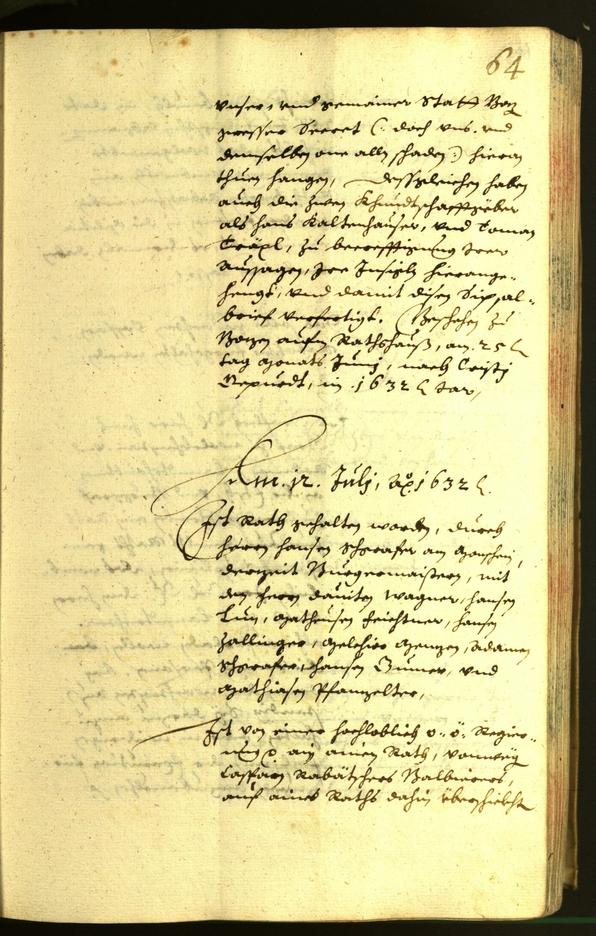 64
unser, und gemainer Statt Bozen
grosser Secret (: doch uns und
demselben one alln schaden :) hieran
thuen hangen, Dessgleichen haben
auch die zwen Khundtschafftgeber
als Hans Kaltenhauser, und Toman
Träxl, zu becrefftigung Irer
aussagen, Ire Insigln hierange-
hengt, und damit disen
brief verfertigt. Beschehen zu
Bozen aufm Rathshauß, am .25.
tag Monats Junij, nach Cristj
Gepurdt, im .1632. Jar,
Am .12. Julj, Ao. 1632.
Ist Rath gehalten worden, durch
herrn Hansen Schrafer am
derzeit Burgermaistern, mit
den herrn Daviten Wagner, Hansen
Lun, Matheusen Feichtner, Hansen
Zallinger, Melchior Menzen, Adamen
Schrafer, Hansen Gumer, und
Mathiasen Pfanzelter,
Ist von einer hochloblich o: ö: Regier-
ung ain ainen Rath, vonwegen
Casparn Rabätschers Balbierers,
auf aines Raths dahin überschickht